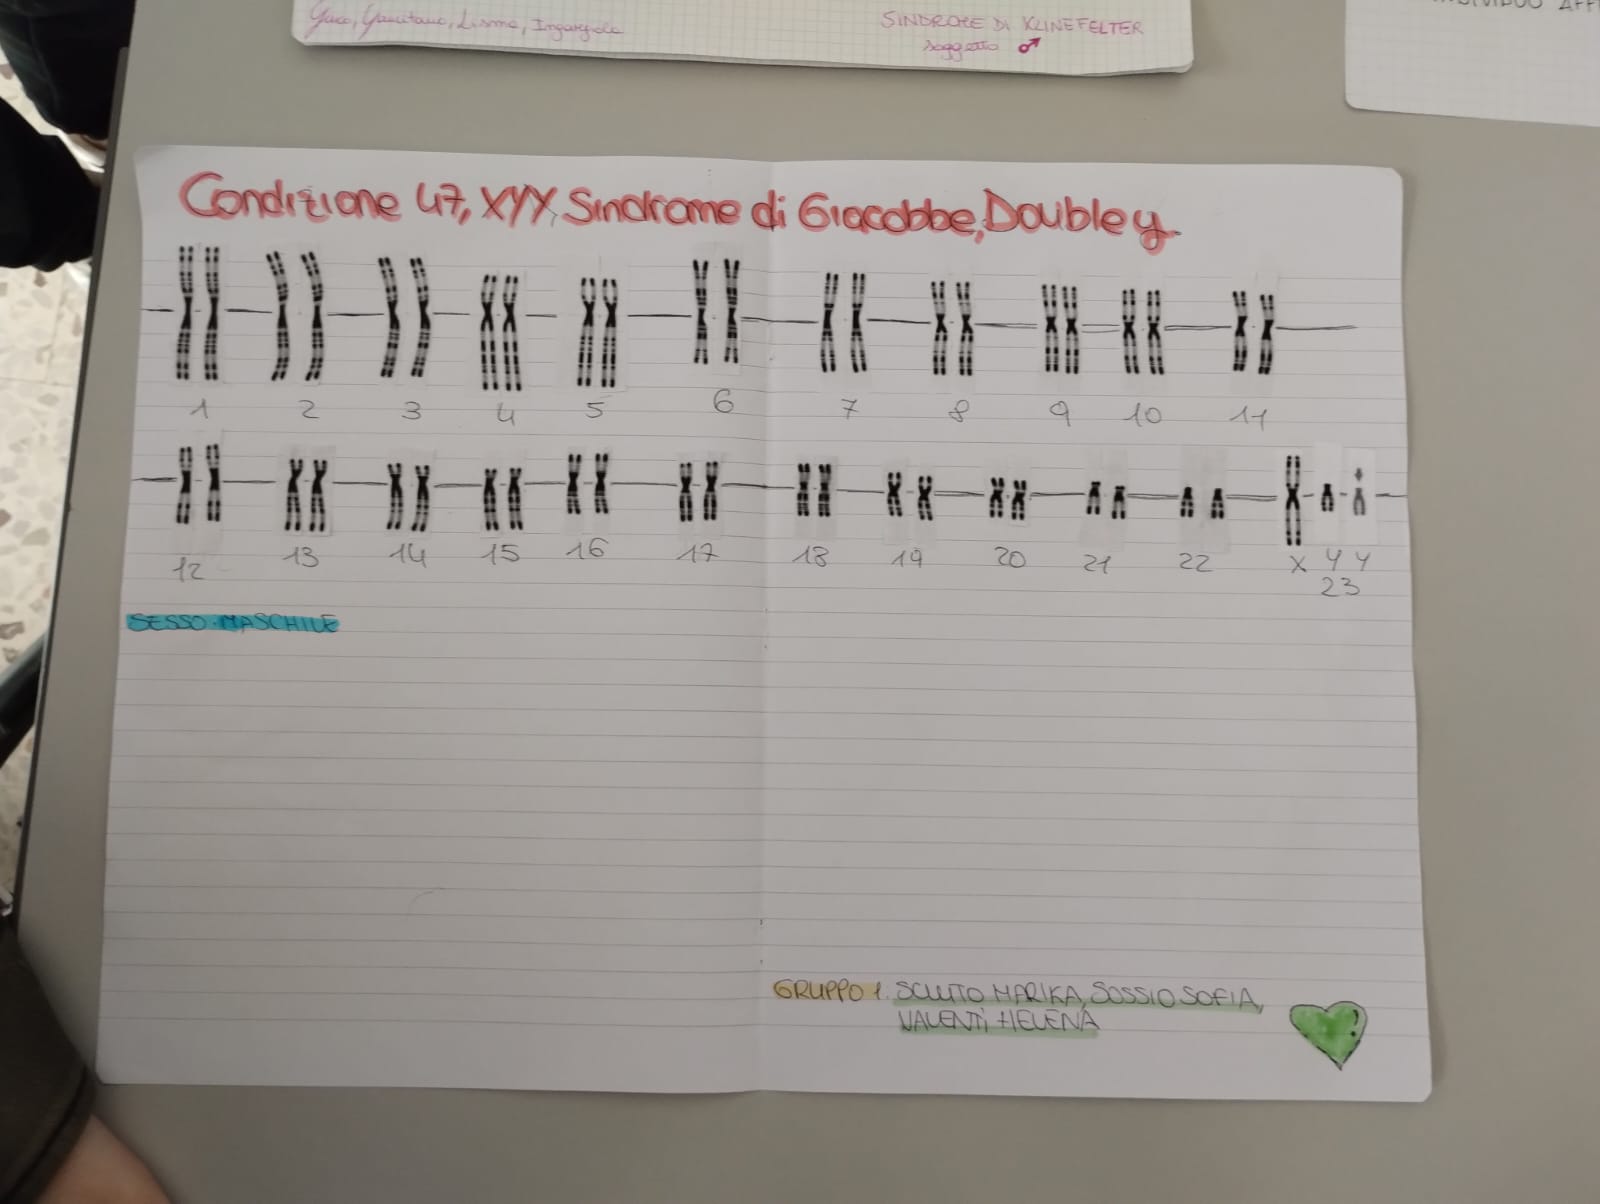 SINDROME DI KLINEFELTER
soggetto ♂
Condizione 47, XYY, Sindrome di Giacobbe, Double y.
1 2 3 4 5 6 7 8 9 10 11
12 13 14 15 16 17 18 19 20 21 22 X Y Y
23
SESSO MASCHILE
GRUPPO 1. SCIUTO MARIKA, SOSSIO SOFIA,
VALENTI HELENA